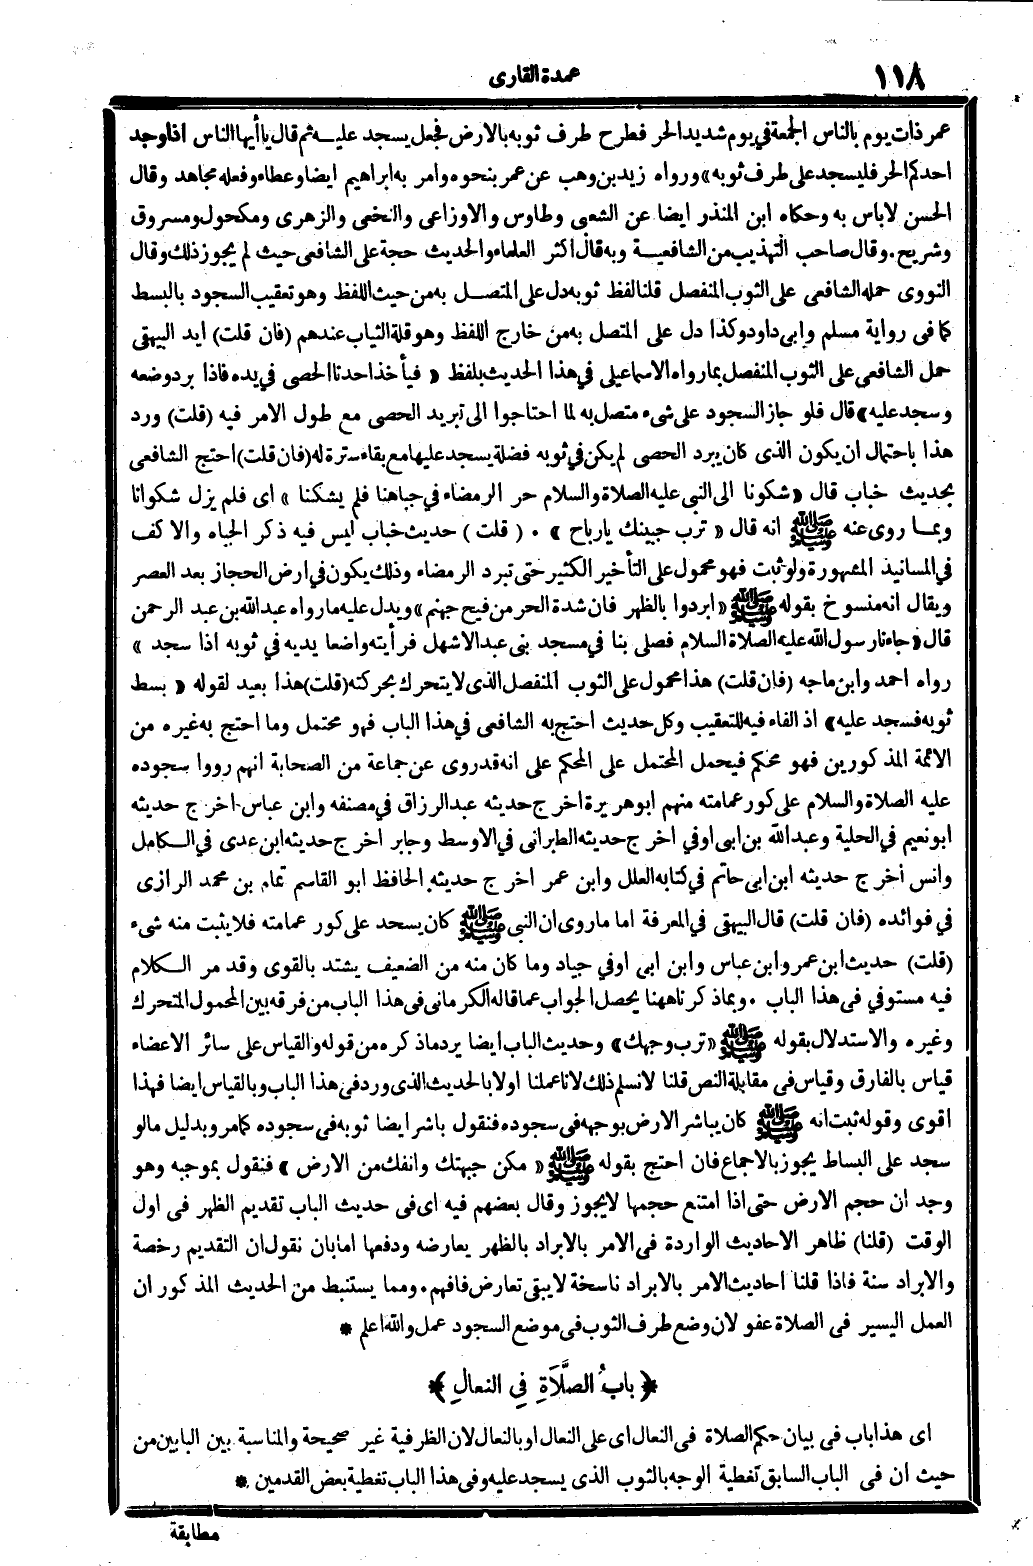 ١١٨
عمدة القارى
عمر ذات يوم بالناس الجمعة في يوم شديد الحر فطرح طرف ثوبه بالارض فجعل يسجد عليه ثم قال يا أيها الناس اذا وجد
احدكم الحر فليسجد على طرف ثوبه» ورواه زيد بن وهب عن عمر بنحوه وامر به ابراهيم ايضا وعطاء وفعله مجاهد وقال
الحسن لا باس به وحكاه ابن المنذر ايضا عن الشعبى وطاوس والاوزاعى والنخعى والزهرى ومكحول ومسروق
وشريح . وقال صاحب التهذيب من الشافعية وبه قال أكثر العلماء والحديث حجة على الشافعى حيث لم يجوز ذلك وقال
النووى حمله الشافعى على الثوب المنفصل قلنا لفظ ثوبه دل على المتصل به من حيث اللفظ وهو تعقيب السجود بالبسط
كما فى رواية مسلم وابى داود وكذا دل على المتصل به من خارج اللفظ وهو قلة الثياب عندهم (فان قلت) ايد البيهقى
حمل الشافعى على الثوب المنفصل بما رواه الاسماعيلى في هذا الحديث بلفظ « فيأخذ احدنا الحصى في يده فاذا برد وضعه
وسجد عليه» قال فلو جاز السجود على شىء متصل به لما احتاجوا الى تبريد الحصى مع طول الامر فيه (قلت) ورد
هذا باحتمال ان يكون الذى كان يبرد الحصى لم يكن في ثوبه فضلة يسجد عليها مع بقاء سترة له (فان قلت) احتج الشافعى
بحديث خباب قال «شكونا الى النبى عليه الصلاة والسلام حر الرمضاء في جباهنا فلم يشكنا » اى فلم يزل شكوانا
وبما روى عنه ﷺ انه قال « ترب جبينك يارباح » . ( قلت ) حديث خباب ليس فيه ذكر الجباه والاكف
في المسانيد المشهورة ولو ثبت فهو محمول على التأخير الكثير حتى تبرد الرمضاء وذلك يكون في ارض الحجاز بعد العصر
ويقال انه منسوخ بقوله ﷺ «ابردوا بالظهر فان شدة الحر من فيح جهنم» ويدل عليه ما رواه عبدالله بن عبد الرحمن
قال «جاءنا رسول الله عليه الصلاة السلام فصلى بنا في مسجد بنى عبد الاشهل فرأيته واضعا يديه في ثوبه اذا سجد »
رواه احمد وابن ماجه (فان قلت) هذا محمول على الثوب المنفصل الذى لا يتحرك بحركته (قلت) هذا بعيد لقوله « بسط
ثوبه فسجد عليه» اذ الفاء فيه للتعقيب وكل حديث احتج به الشافعى في هذا الباب فهو محتمل وما احتج به غيره من
الائمة المذكورين فهو محكم فيحمل المحتمل على المحكم على انه قد روى عن جماعة من الصحابة انهم رووا سجوده
عليه الصلاة والسلام على كور عمامته منهم ابو هريرة اخرج حديثه عبد الرزاق في مصنفه وابن عباس اخرج حديثه
ابو نعيم في الحلية وعبد الله بن ابى اوفي اخرج حديثه الطبرانى في الاوسط وجابر اخرج حديثه ابن عدى في الكامل
وانس أخرج حديثه ابن ابى حاتم في كتابه العلل وابن عمر اخرج حديثه الحافظ ابو القاسم تمام بن محمد الرازى
في فوائده (فان قلت) قال البيهقى في المعرفة اما ما روى ان النبى ﷺ كان يسجد على كور عمامته فلا يثبت منه شىء
(قلت) حديث ابن عمر وابن عباس وابن ابى اوفي جياد وما كان منه من الضعيف يشتد بالقوى وقد مر الكلام
فيه مستوفي فى هذا الباب . وبما ذكرنا ههنا يحصل الجواب عما قاله الكرمانى فى هذا الباب من فرقه بين المحمول المتحرك
وغيره والاستدلال بقوله ﷺ «ترب وجهك» وحديث الباب ايضا يرد ما ذكره من قوله والقياس على سائر الاعضاء
قياس بالفارق وقياس فى مقابلة النص قلنا لا نسلم ذلك لانا عملنا اولا بالحديث الذى ورد فى هذا الباب وبالقياس ايضا فهذا
اقوى وقوله ثبت انه ﷺ كان يباشر الارض بوجهه فى سجوده فنقول باشر ايضا ثوبه فى سجوده كما مر وبدليل مالو
سجد على البساط يجوز بالاجماع فان احتج بقوله ﷺ « مكن جبهتك وانفك من الارض » فنقول بموجبه وهو
وجد ان حجم الارض حتى اذا امتنع حجمها لا يجوز وقال بعضهم فيه اى فى حديث الباب تقديم الظهر فى اول
الوقت (قلنا) ظاهر الاحاديث الواردة فى الامر بالابراد بالظهر يعارضه ودفعها اما بان نقول ان التقديم رخصة
والابراد سنة فاذا قلنا احاديث الامر بالابراد ناسخة لا يبقى تعارض فافهم . ومما يستنبط من الحديث المذكور ان
العمل اليسير فى الصلاة عفو لان وضع طرف الثوب فى موضع السجود عمل والله اعلم *
*( بابُ الصَّلَاةِ فِي النعالِ )*
اى هذا باب فى بيان حكم الصلاة فى النعال اى على النعال او بالنعال لان الظرفية غير صحيحة والمناسبة بين البابين من
حيث ان فى الباب السابق تغطية الوجه بالثوب الذى يسجد عليه وفى هذا الباب تغطية بعض القدمين *
مطابقة